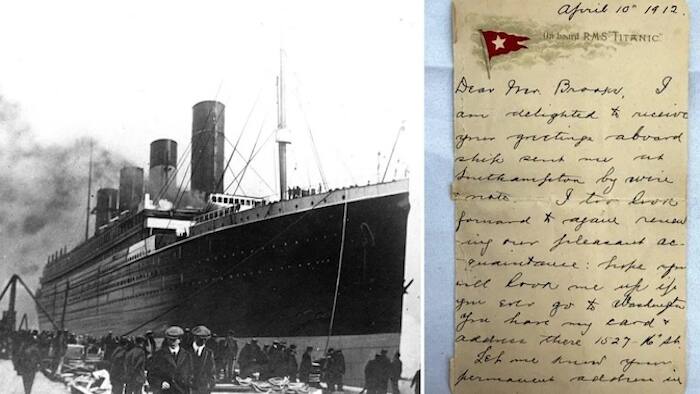 April 10th 1912.
On board RMS "TITANIC"
Dear Mrs Brooks, I
am delighted to receive
your greetings aboard
ship sent me at
Southampton by wire
note. I too look
forward to again renew
ing our pleasant ac
quaintance: hope you
will look me up if
you ever go to Washington
You have my card &
address there 1527-16th St.
Let me know your
permanent address in